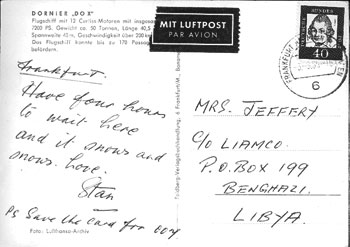 DORNIER „DO X"
Flugschiff mit 12 Curtiss Motoren mit insgesamt
7200 PS, Gewicht ca. 50 Tonnen, Länge 40,5
Spannweite 48 m, Geschwindigkeit über 200 km
Das Flugschiff konnte bis zu 170 Passagiere
befördern.
MIT LUFTPOST
PAR AVION
DEUTSCHE BUNDESPOST
40
FRANKFURT
6
Frankfurt.
Have four hours
to wait here
and it snows and
snows. Love.
Stan
PS Save the card for
Foto: Lufthansa-Archiv
MRS. JEFFERY
C/O LIAMCO.
P.O. BOX 199
BENGHAZI.
LIBYA.